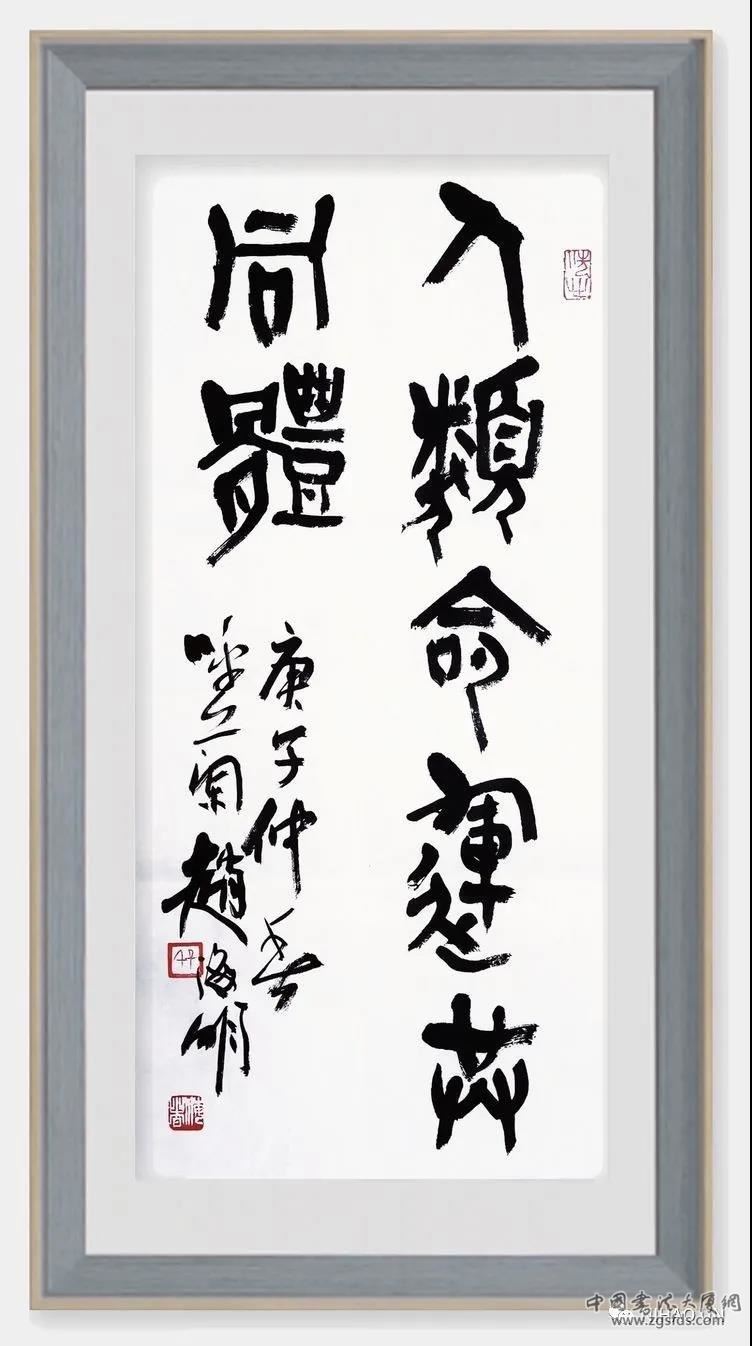 人類命運共
同體
庚子仲春
趙海明
中國書法大厦網
www.zgsfds.com